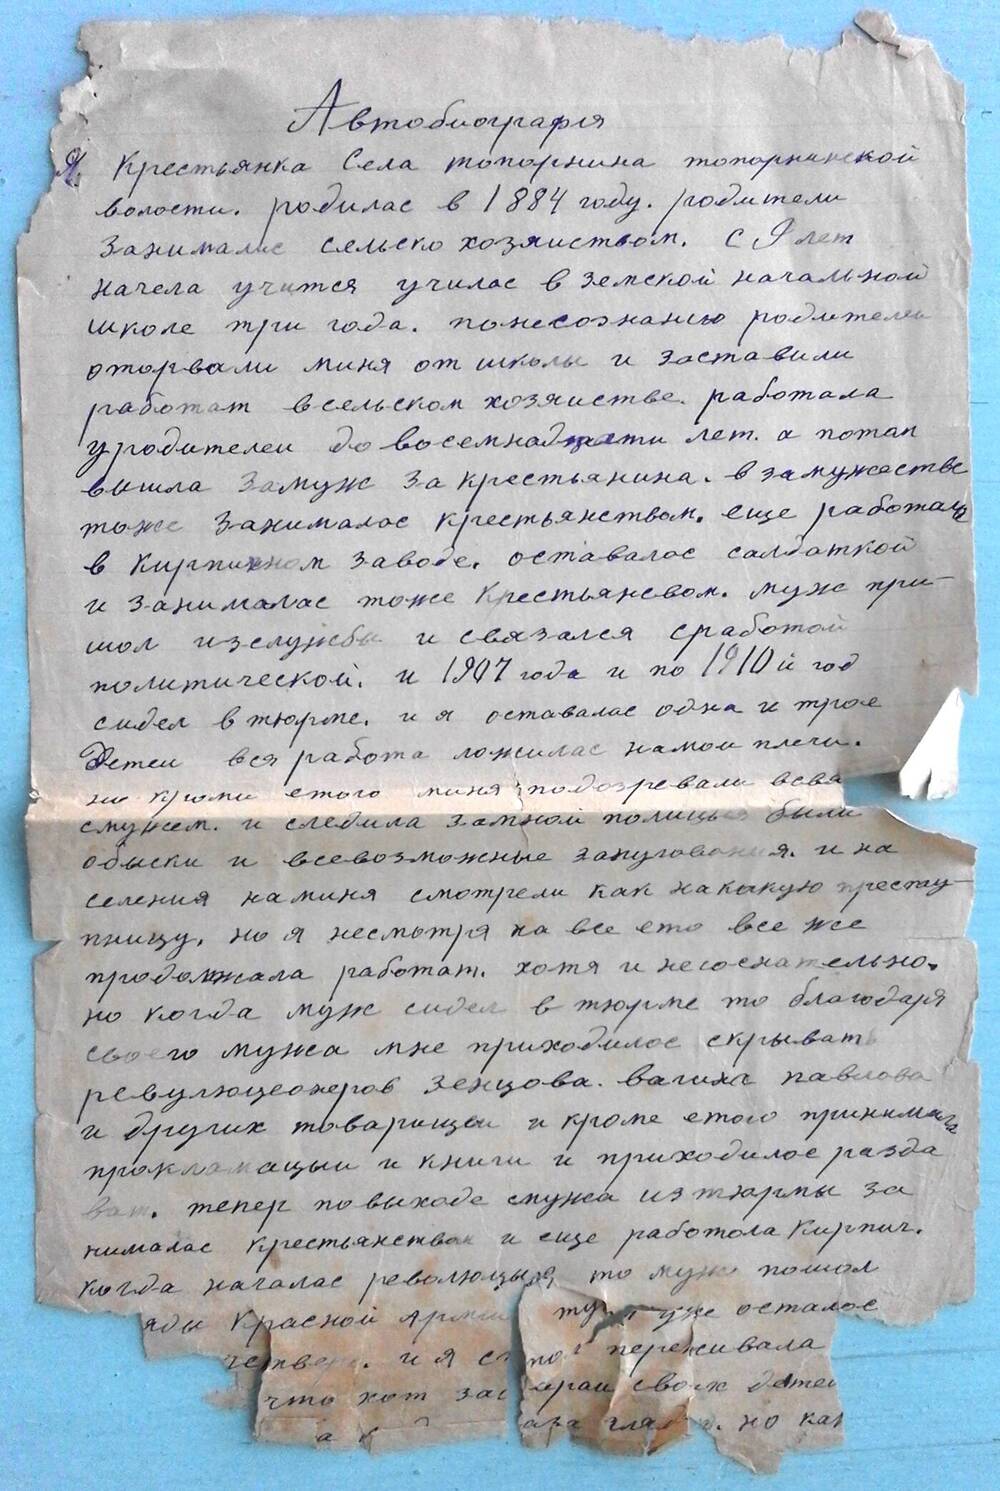 Автобиографія
Я. Крестьянка Села топорнина топорнинской
волости. родилас в 1884 году. родители
Занималис сельско хозяиством. с 9 лет
начела учится училас в земской начальной
школе три года. понесознанию родителеи
оторвали миня от школы и заставили
работат всельском хозяистве. работала
уродителеи до восемнадцати лет. а потап
вышла замуж за крестьянина. в замужестве
тоже занималас крестьянствам. еще работала
в Кирпичном заводе. оставалас салдаткой
и занималас тоже Крестьянсвом. муж при-
шол изслужбы и связался сработой
политической. и 1907 года и по 1910 й год
сидел втюрме. и я оставалас одна и трое
Детеи вся работа ложилас намои плечи.
но кроми етого миня подозревали всва
смужем. и следила замной полицыя были
обыски и всевозможные запугования. и на
селения наминя смотрели как накакую престу-
пницу. но я несмотря на все ето все же
продолжала работат. хотя и несоснательно.
но когда муж сидел в тюрме то благодаря
своего мужа мне приходилос скрывать
революцеонеров Зенцова. вагина павлова
и других товарищеи и кроме етого принимала
прокламацыи и книги и приходилос разда
ват. тепер повыходе смужа из тюрмы за
нималас крестьянством и еще работола Кирпич.
когда началас революцыя то муж пошол
яды Красной Арми уже осталос
четверо. и я переживала
что хот своих детеи
глаз но как